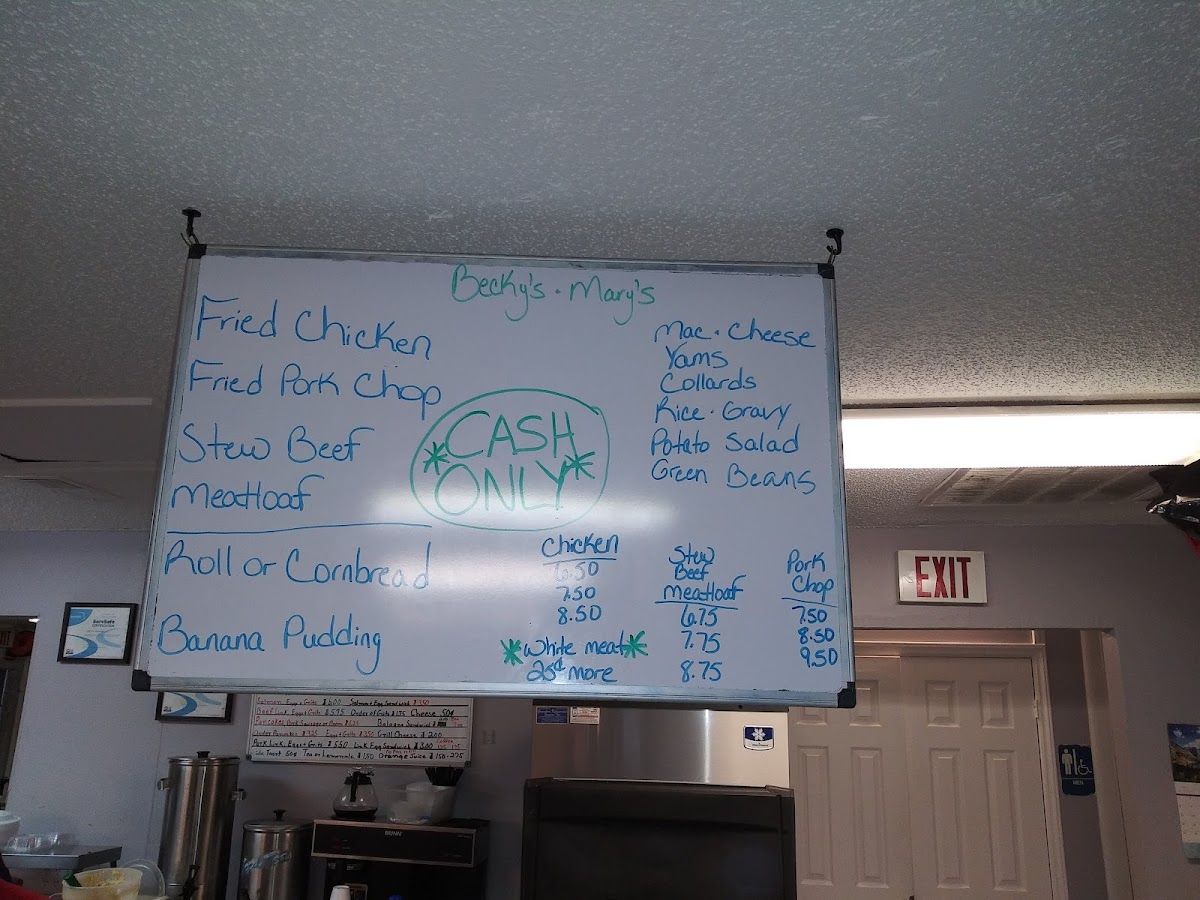 Becky's · Mary's
Fried Chicken
Fried Pork Chop
Stew Beef
Meatloaf
Roll or Cornbread
Banana Pudding
*CASH
ONLY*
Mac · Cheese
Yams
Collards
Rice · Gravy
Potato Salad
Green Beans
Chicken
6.50
7.50
8.50
*White meat*
25¢ more
Stew
Beef
Meatloaf
6.75
7.75
8.75
Pork
Chop
7.50
8.50
9.50
EXIT
ServSafe
BUNN
MEN